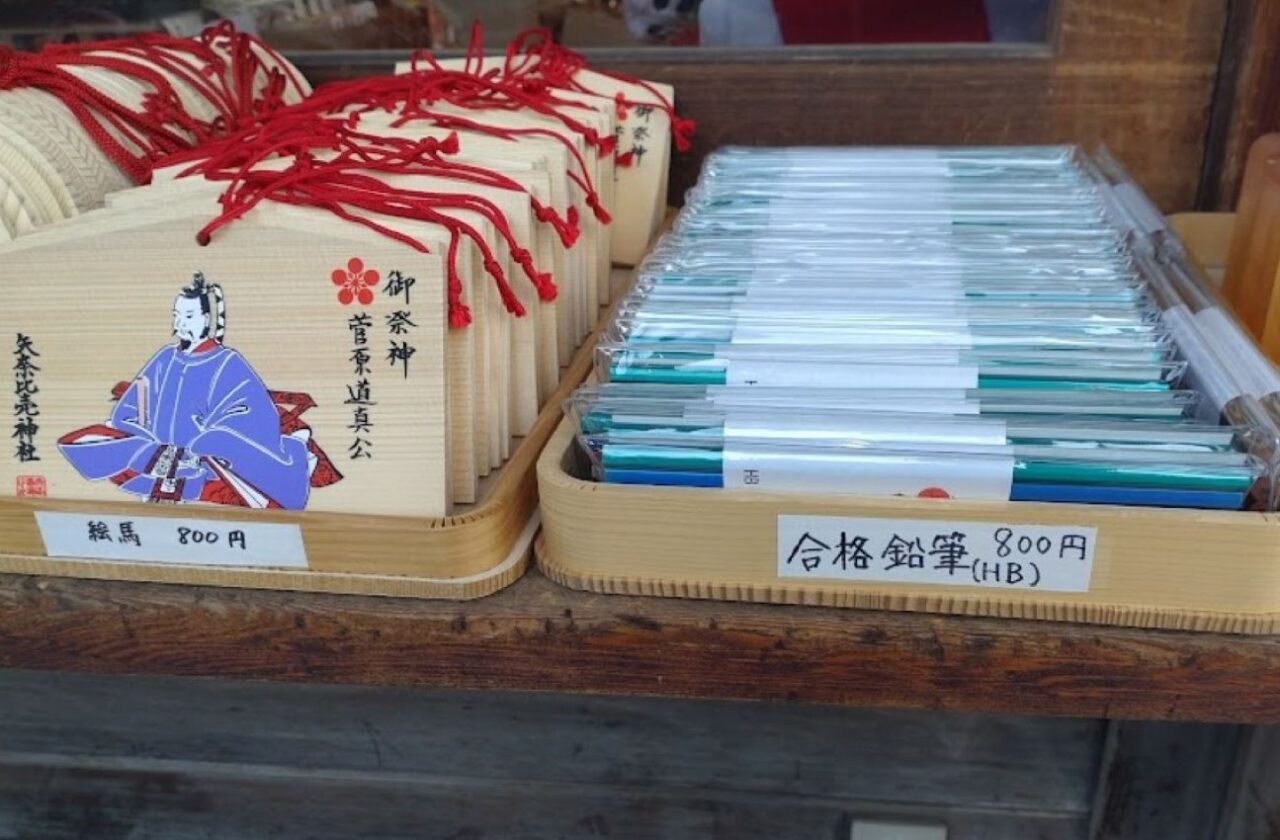 御祭神
菅原道真公
矢奈比売神社
絵馬 800円
御祭神
HB
合格鉛筆 800円
(HB)